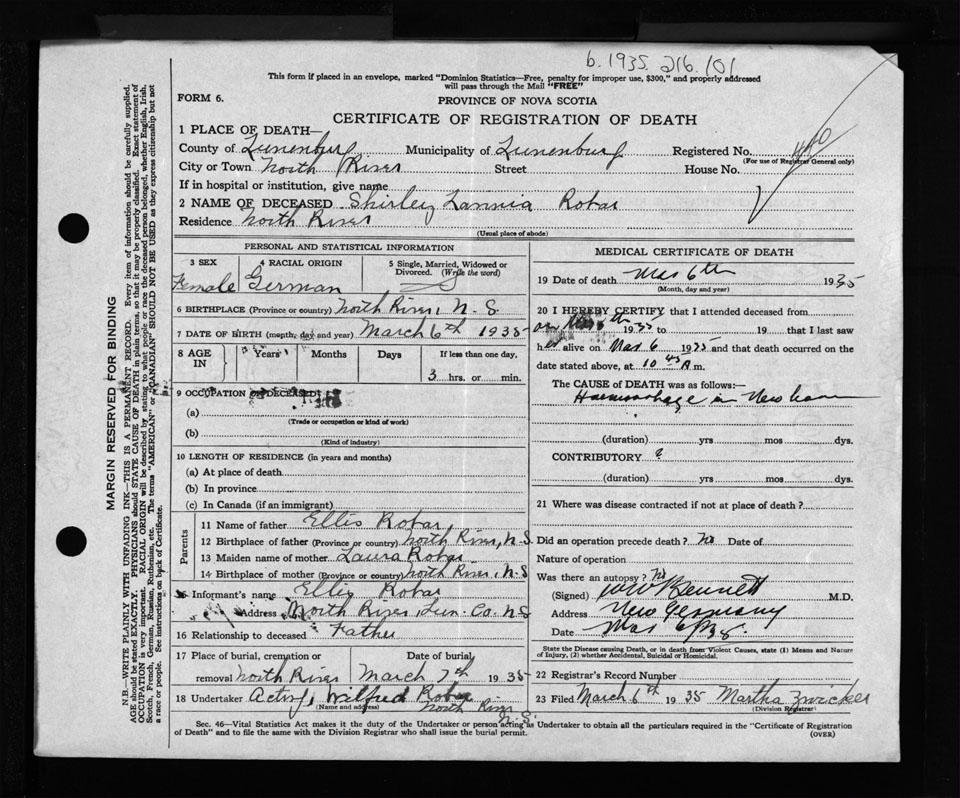 b. 1935. 216. 101
This form if placed in an envelope, marked "Dominion Statistics—Free, penalty for improper use, $300," and properly addressed
will pass through the Mail "FREE"
FORM 6.
PROVINCE OF NOVA SCOTIA
CERTIFICATE OF REGISTRATION OF DEATH
MARGIN RESERVED FOR BINDING
N.B.—WRITE PLAINLY WITH UNFADING INK—THIS IS A PERMANENT RECORD. Every item of information should be carefully supplied.
AGE should be stated EXACTLY. PHYSICIANS should STATE CAUSE OF DEATH in plain terms, so that it may be properly classified. Exact statement of
OCCUPATION is very important. RACIAL ORIGIN will be described by stating to what people or race the deceased person belonged, whether English, Irish,
Scotch, French, German, Russian, Ruthenian, etc. The terms "AMERICAN" or "CANADIAN" SHOULD NOT BE USED as they express citizenship but not
a race or people. See instructions on back of Certificate.
1 PLACE OF DEATH—
County of Lunenburg Municipality of Lunenburg Registered No.
(For use of Registrar General only)
City or Town North River Street House No.
If in hospital or institution, give name
2 NAME OF DECEASED Shirley Robar
Residence North River
(Usual place of abode)
PERSONAL AND STATISTICAL INFORMATION
3 SEX 4 RACIAL ORIGIN 5 Single, Married, Widowed or
Divorced. (Write the word)
Female German S
6 BIRTHPLACE (Province or country) North River, N.S
7 DATE OF BIRTH (month, day and year) March 6th 1935
8 AGE IN Years Months Days If less than one day,
3 hrs. or min.
9 OCCUPATION OF DECEASED:
(a)
(Trade or occupation or kind of work)
(b)
(Kind of industry)
10 LENGTH OF RESIDENCE (in years and months)
(a) At place of death
(b) In province
(c) In Canada (if an immigrant)
Parents
11 Name of father Ellis Robar
12 Birthplace of father (Province or country) North River, N.S
13 Maiden name of mother Laura Robar
14 Birthplace of mother (Province or country) North River, N.S
15 Informant's name Ellis Robar
Address North River, Lun. Co. N.S
16 Relationship to deceased Father
17 Place of burial, cremation or Date of burial
removal North River March 7th 1935
18 Undertaker Acting, Wilfred Robar
(Name and address) North River
N.S.
MEDICAL CERTIFICATE OF DEATH
19 Date of death Mar 6th 1935
(Month, day and year)
20 I HEREBY CERTIFY that I attended deceased from
1935 to 19 that I last saw
her alive on Mar 6 1935 and that death occurred on the
date stated above, at 10 45 A m.
The CAUSE OF DEATH was as follows:—
Haemorrhage in New born
(duration) yrs mos dys.
CONTRIBUTORY ?
(duration) yrs mos dys.
21 Where was disease contracted if not at place of death ?
Did an operation precede death ? No Date of
Nature of operation
Was there an autopsy ? No
(Signed) Bennett M.D.
Address New Germany
Date Mar 6/35.
State the Disease causing Death, or in death from Violent Causes, state (1) Means and Nature
of Injury, (2) whether Accidental, Suicidal or Homicidal.
22 Registrar's Record Number
23 Filed March 6th 1935 Martha Zwicker
(Division Registrar)
Sec. 46—Vital Statistics Act makes it the duty of the Undertaker or person acting as Undertaker to obtain all the particulars required in the "Certificate of Registration
of Death" and to file the same with the Division Registrar who shall issue the burial permit.
(OVER)